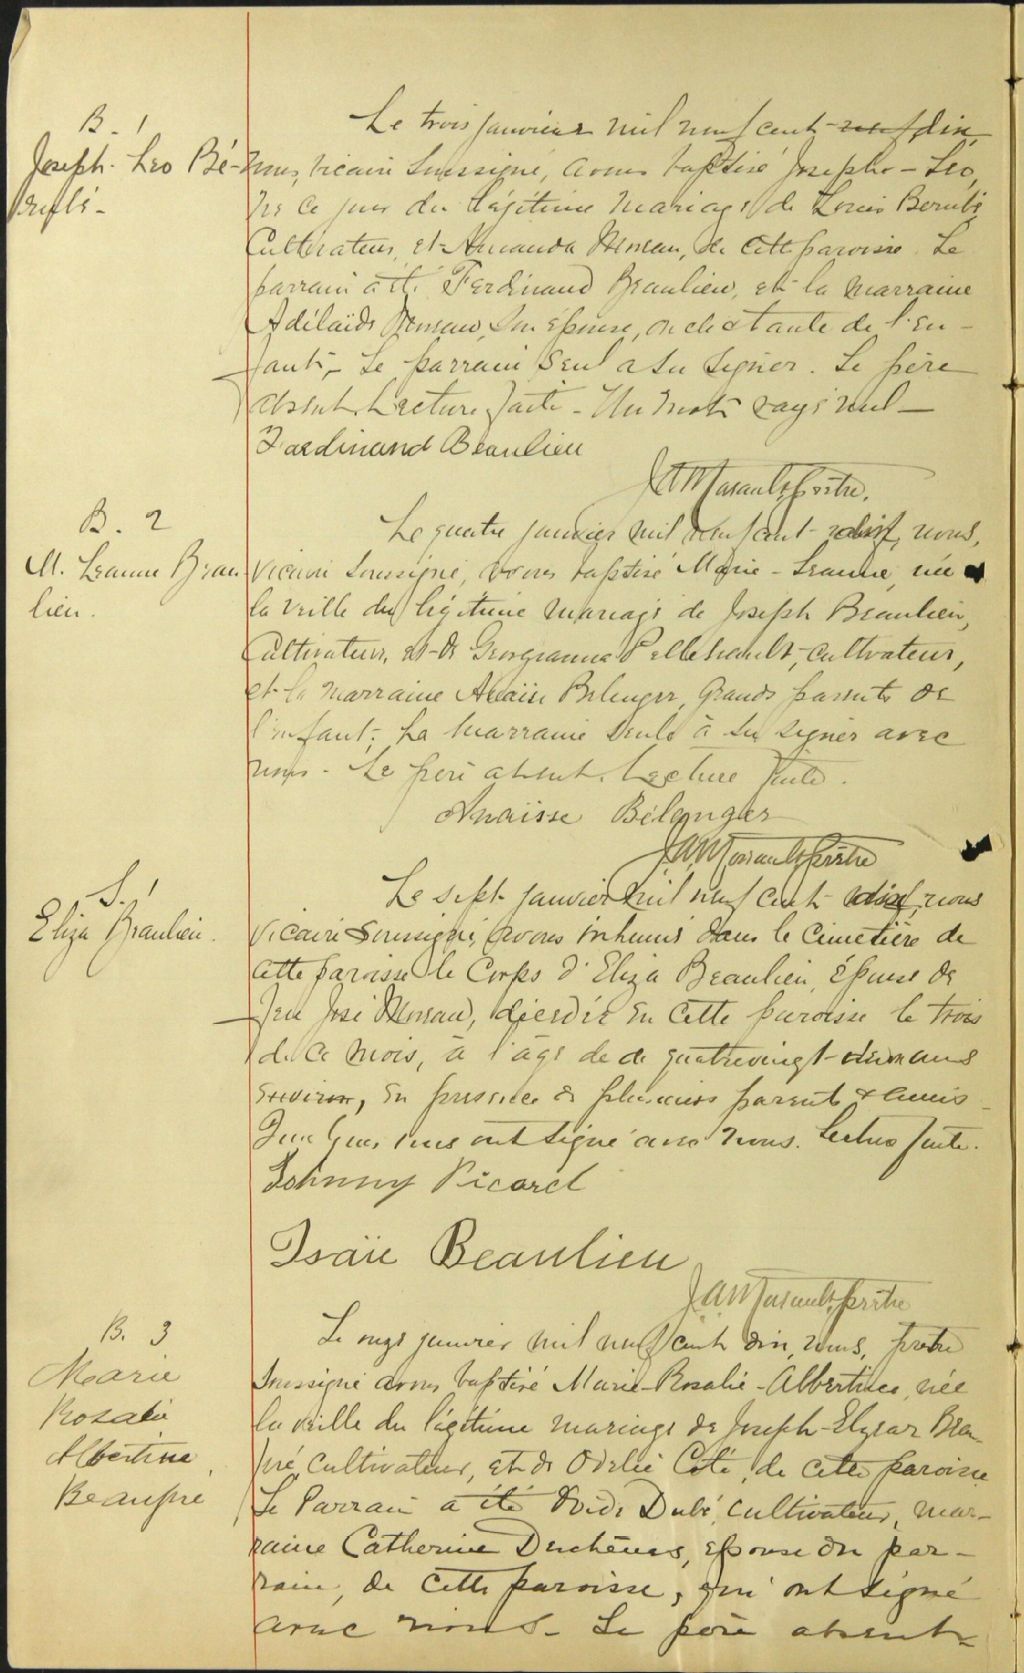 B. 1
Joseph. Leo Bé-
rubé-
Le trois janvier mil neuf cent neuf dix,
nous, vicaire soussigné, avons baptisé Joseph-Leo,
né ce jour du légitime mariage de Louis Berubé,
Cultivateur, et Amanda Moreau, de cette paroisse. Le
parrain a été Ferdinand Beaulieu, et la marraine
Adélaïde Moreau, son épouse, oncle & tante de l'en-
fant, Le parrain seul a su signer. Le père
absent. Lecture faite - Un mot rayé nul -
Ferdinand Beaulieu
prêtre.
B. 2
M. Leanne Beau
lieu.
Le quatre janvier mil neuf cent dix, nous,
vicaire soussigné, avons baptisé Marie-Leanne, née
la veille du légitime mariage de Joseph Beaulieu,
Cultivateur, et de Georgianna Pelletrault, cultivateur,
et la marraine Anaïse Belenger, Grands parents de
l'enfant. La marraine seule à su signer avec
nous. Le père absent. Lecture faite.
Anaïsse Bélanger
prêtre
S. 1
Eliza Beaulieu.
Le sept janvier mil neuf cent dix, nous
vicaire soussigné, avons inhumé dans le Cimetière de
cette paroisse le Corps d'Eliza Beaulieu, Épouse de
feu José Moreau, décédée en cette paroisse le trois
de ce mois, à l'âge de de quatrevingt ans
environ, en présence de plusieurs parents & amis
Quelques uns ont signé avec nous. Lecture faite.
Johnny Picard
Isaïe Beaulieu
prêtre
B. 3
Marie
Rosalie
Albertine
Beaupré
Le onze janvier mil neuf cent dix, nous, prêtre
soussigné avons baptisé Marie-Rosalie-Albertine, née
la veille du légitime mariage de Joseph-Elzear Beau-
pré, cultivateur, et de Odelie Coté, de cette paroisse
Le Parrain a été Dubé, cultivateur, mar-
raine Catherine Deschênes, épouse du par-
rain, de cette paroisse, qui ont signé
avec nous - Le père absent-